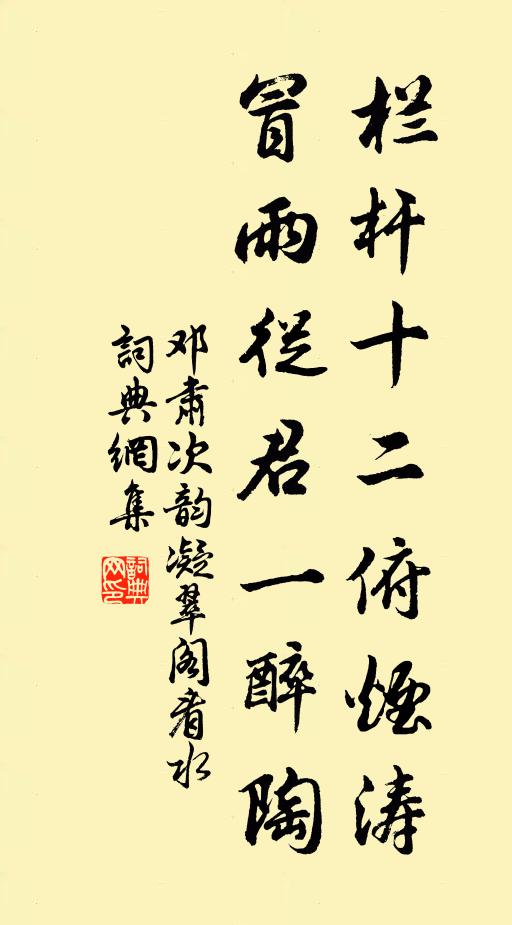 栏杆十二俯烟涛
冒雨從君一醉陶
邓肃次韵凝翠阁看水
詞典網集
詞典网印